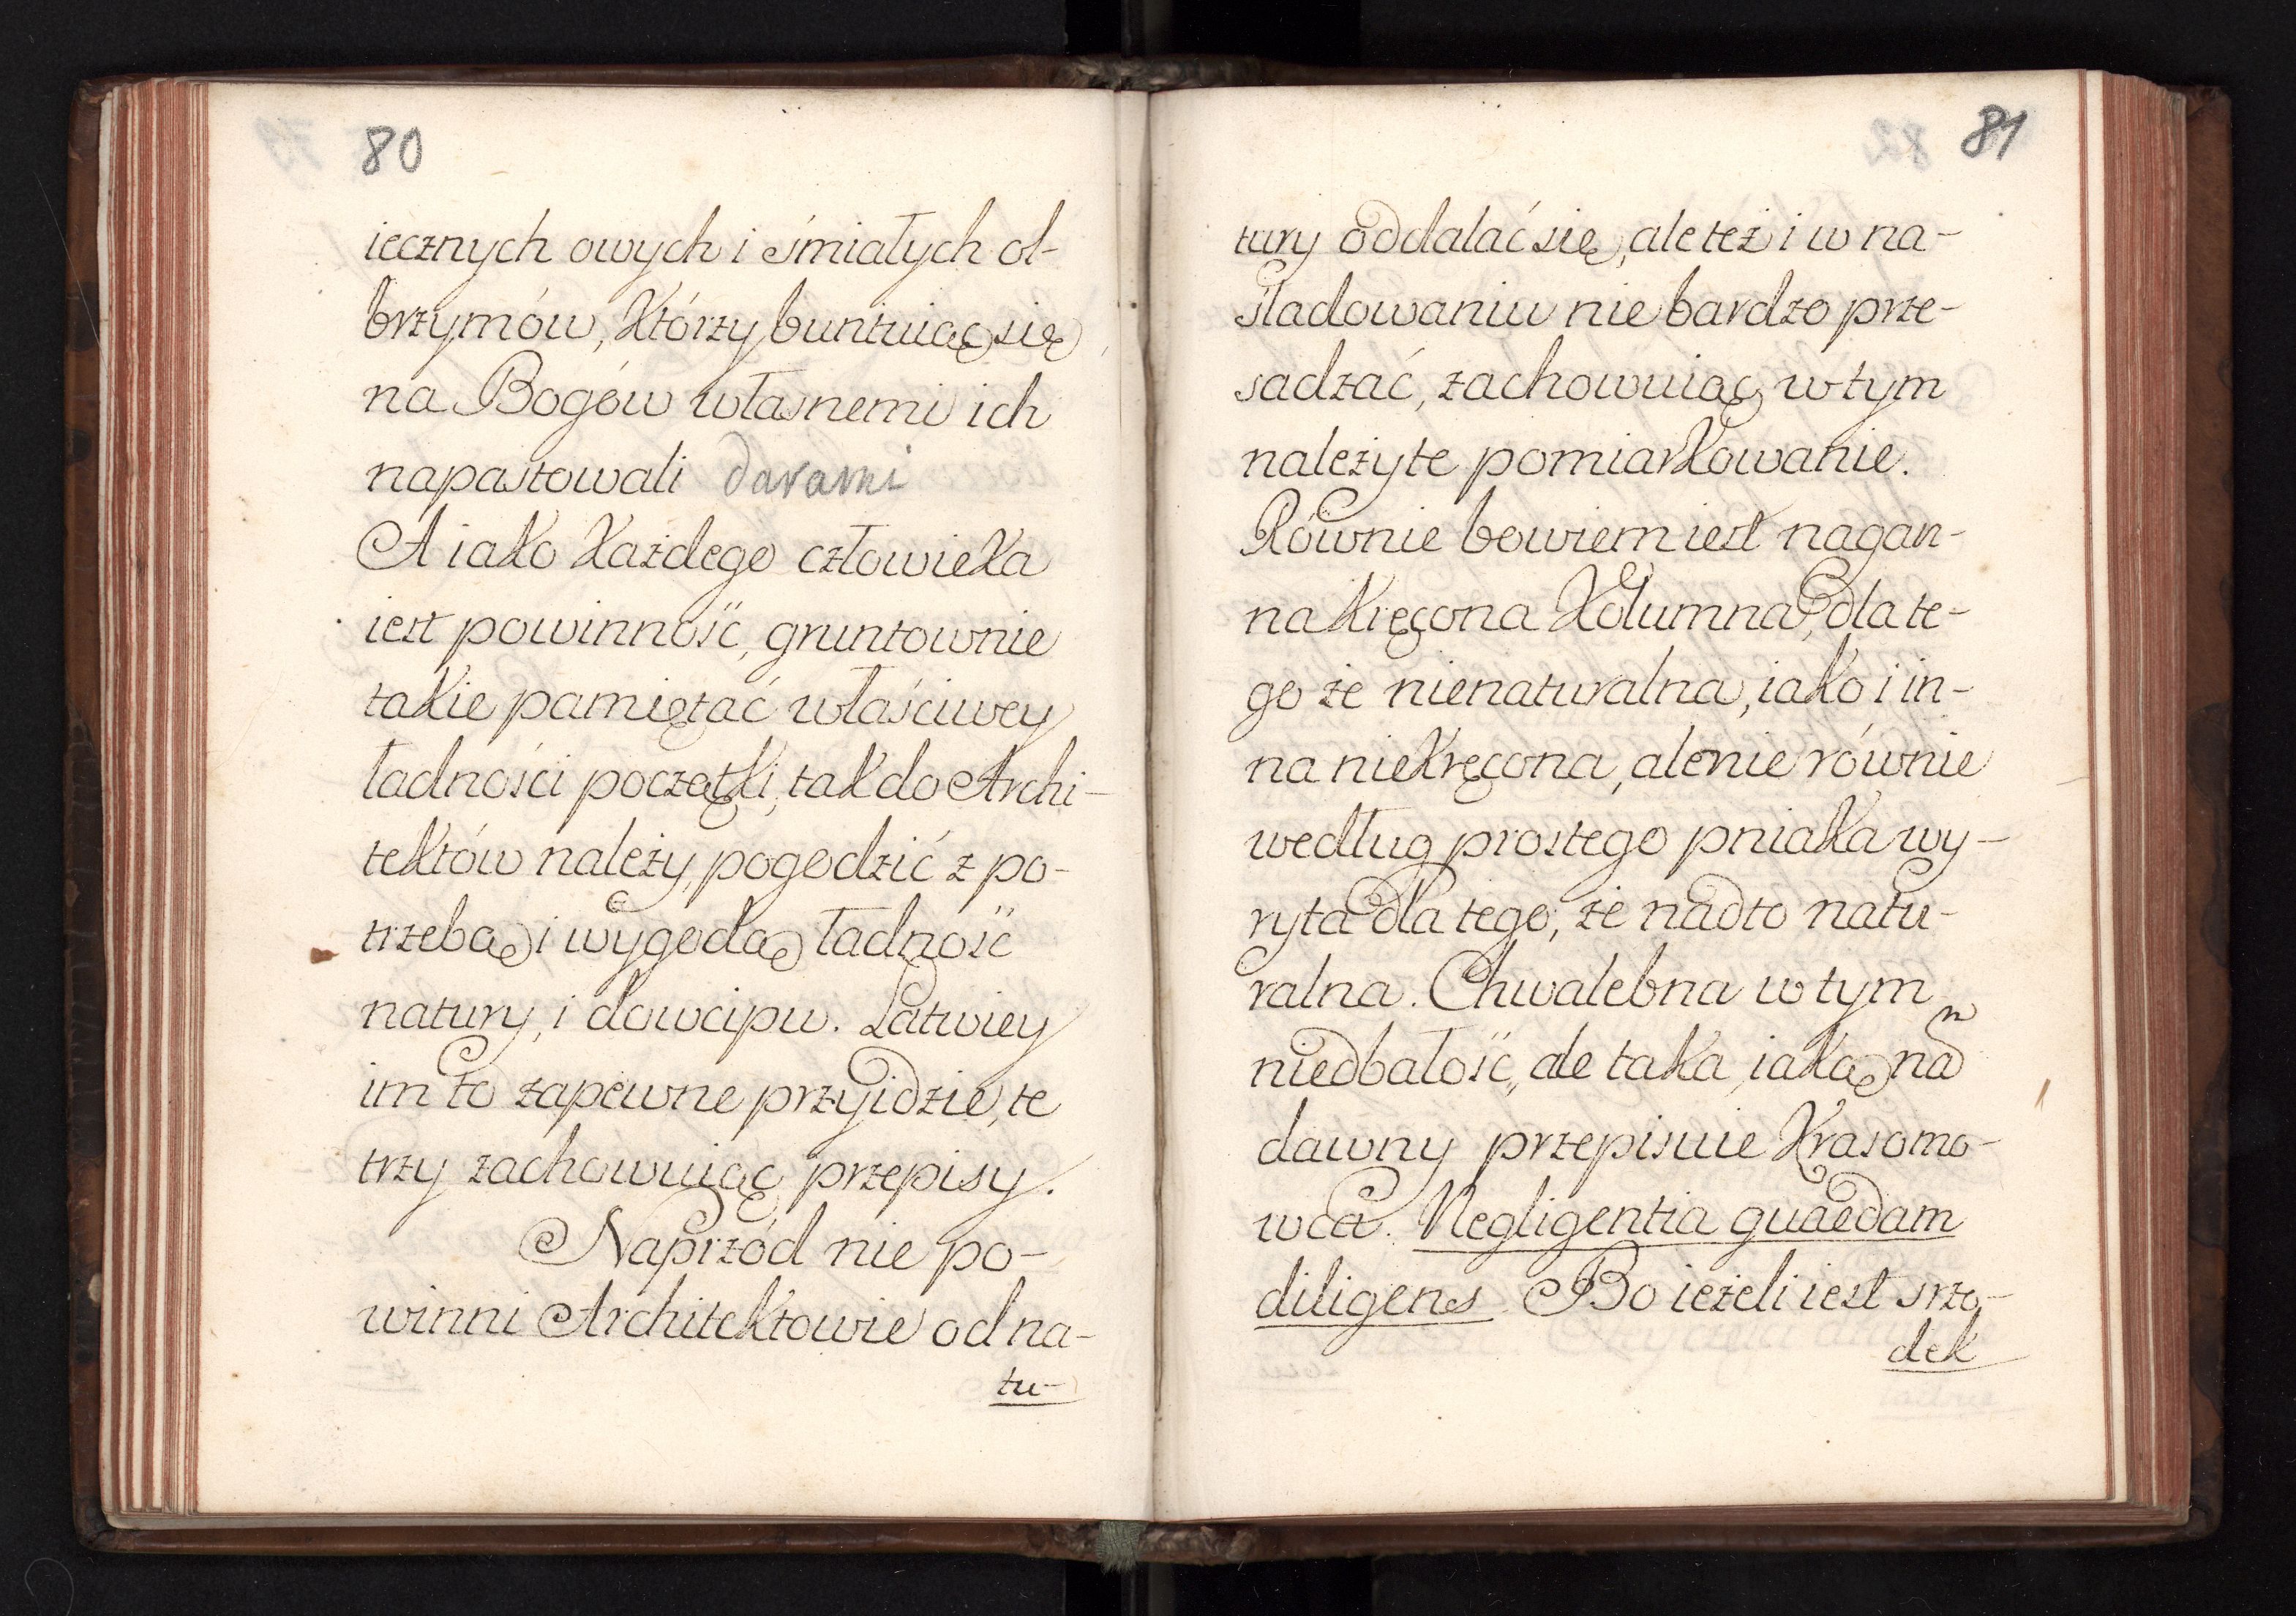 80
iecznych owych i śmiałych ol-
brzymów, Którzy buntuiąc się
na Bogów własnemi ich
napastowali darami
A iako Każdego człowieKa
iest powinność, gruntownie
takie pamiętać właściwey
ładności początKi, tak do Archi-
teKtów należy, pogodzić z po-
trzebą i wygodą ładność
natury, i dowcipu. Łatwiey
im to zapewne przyidzie, te
trzy zachowuiąc przepisy.
Naprzód nie po-
winni ArchiteKtowie od na-
tu-
81
tury oddalać się, ale też i w na-
śladowaniu nie bardzo prze-
sadzać, zachowuiąc w tym
należyte pomiarKowanie.
Równie bowiem iest nagan-
na Kręcona Kolumna, dla te-
go że nienaturalna, iako i in-
na nieKręcona, ale nie równie
według prostego pniaKa wy-
ryta dla tego, że nadto natu-
ralna. Chwalebna w tym
niedbałość, ale taKa, iaKą nã
dawny przepisuie Krasomo-
wca. Negligentia quaedam
diligens. Bo ieżeli iest srzo-
dek